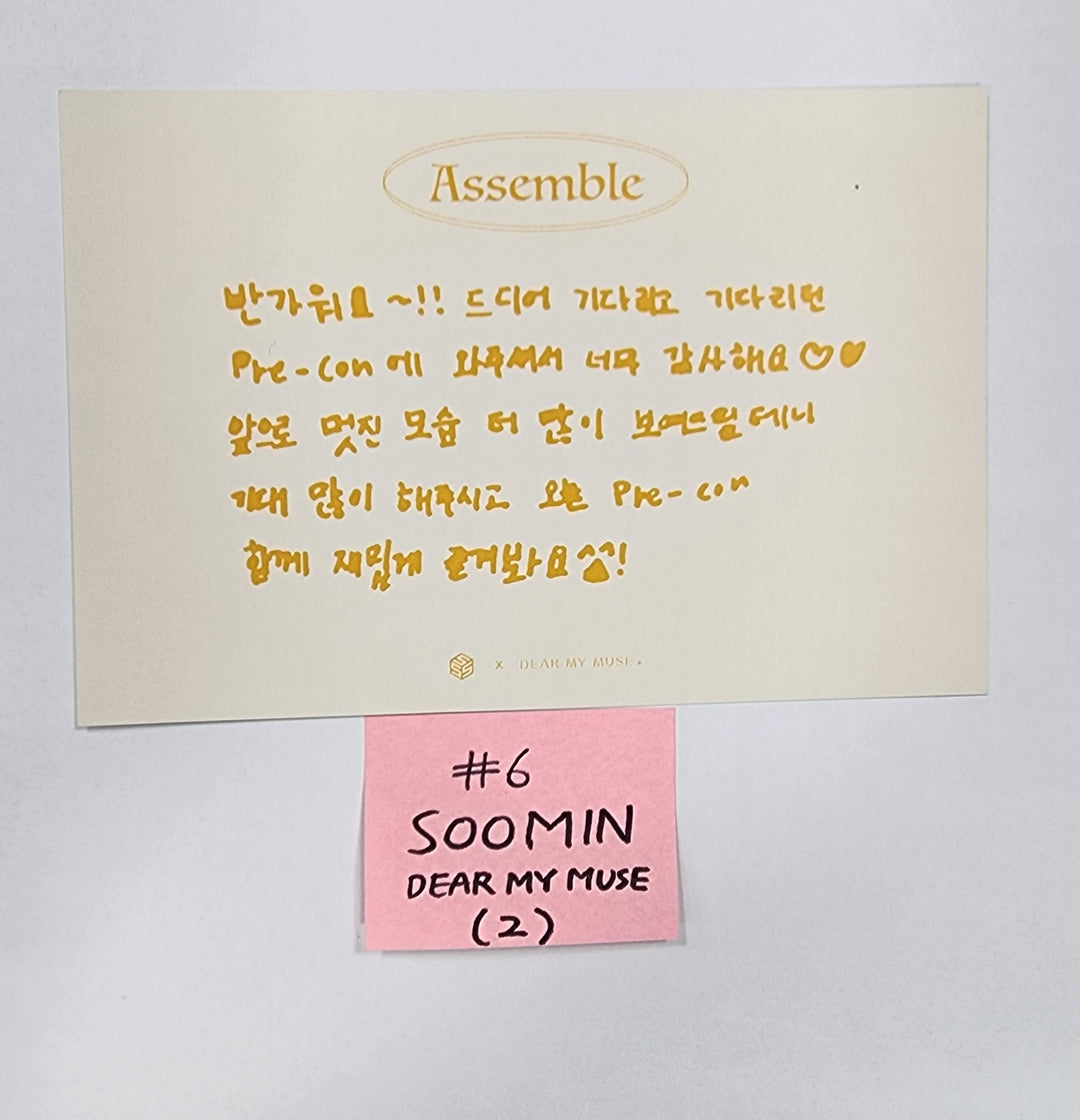 Assemble
반가워요 ~!! 드디어 기다리고 기다리던
Pre-con 에 와주셔서 너무 감사해요♡♥
앞으로 멋진 모습 더 많이 보여드릴테니
기대 많이 해주시고 오늘 Pre-con
함께 재밌게 즐겨봐요 ^^!
X DEAR MY MUSE.
#6
SOOMIN
DEAR MY MUSE
(2)